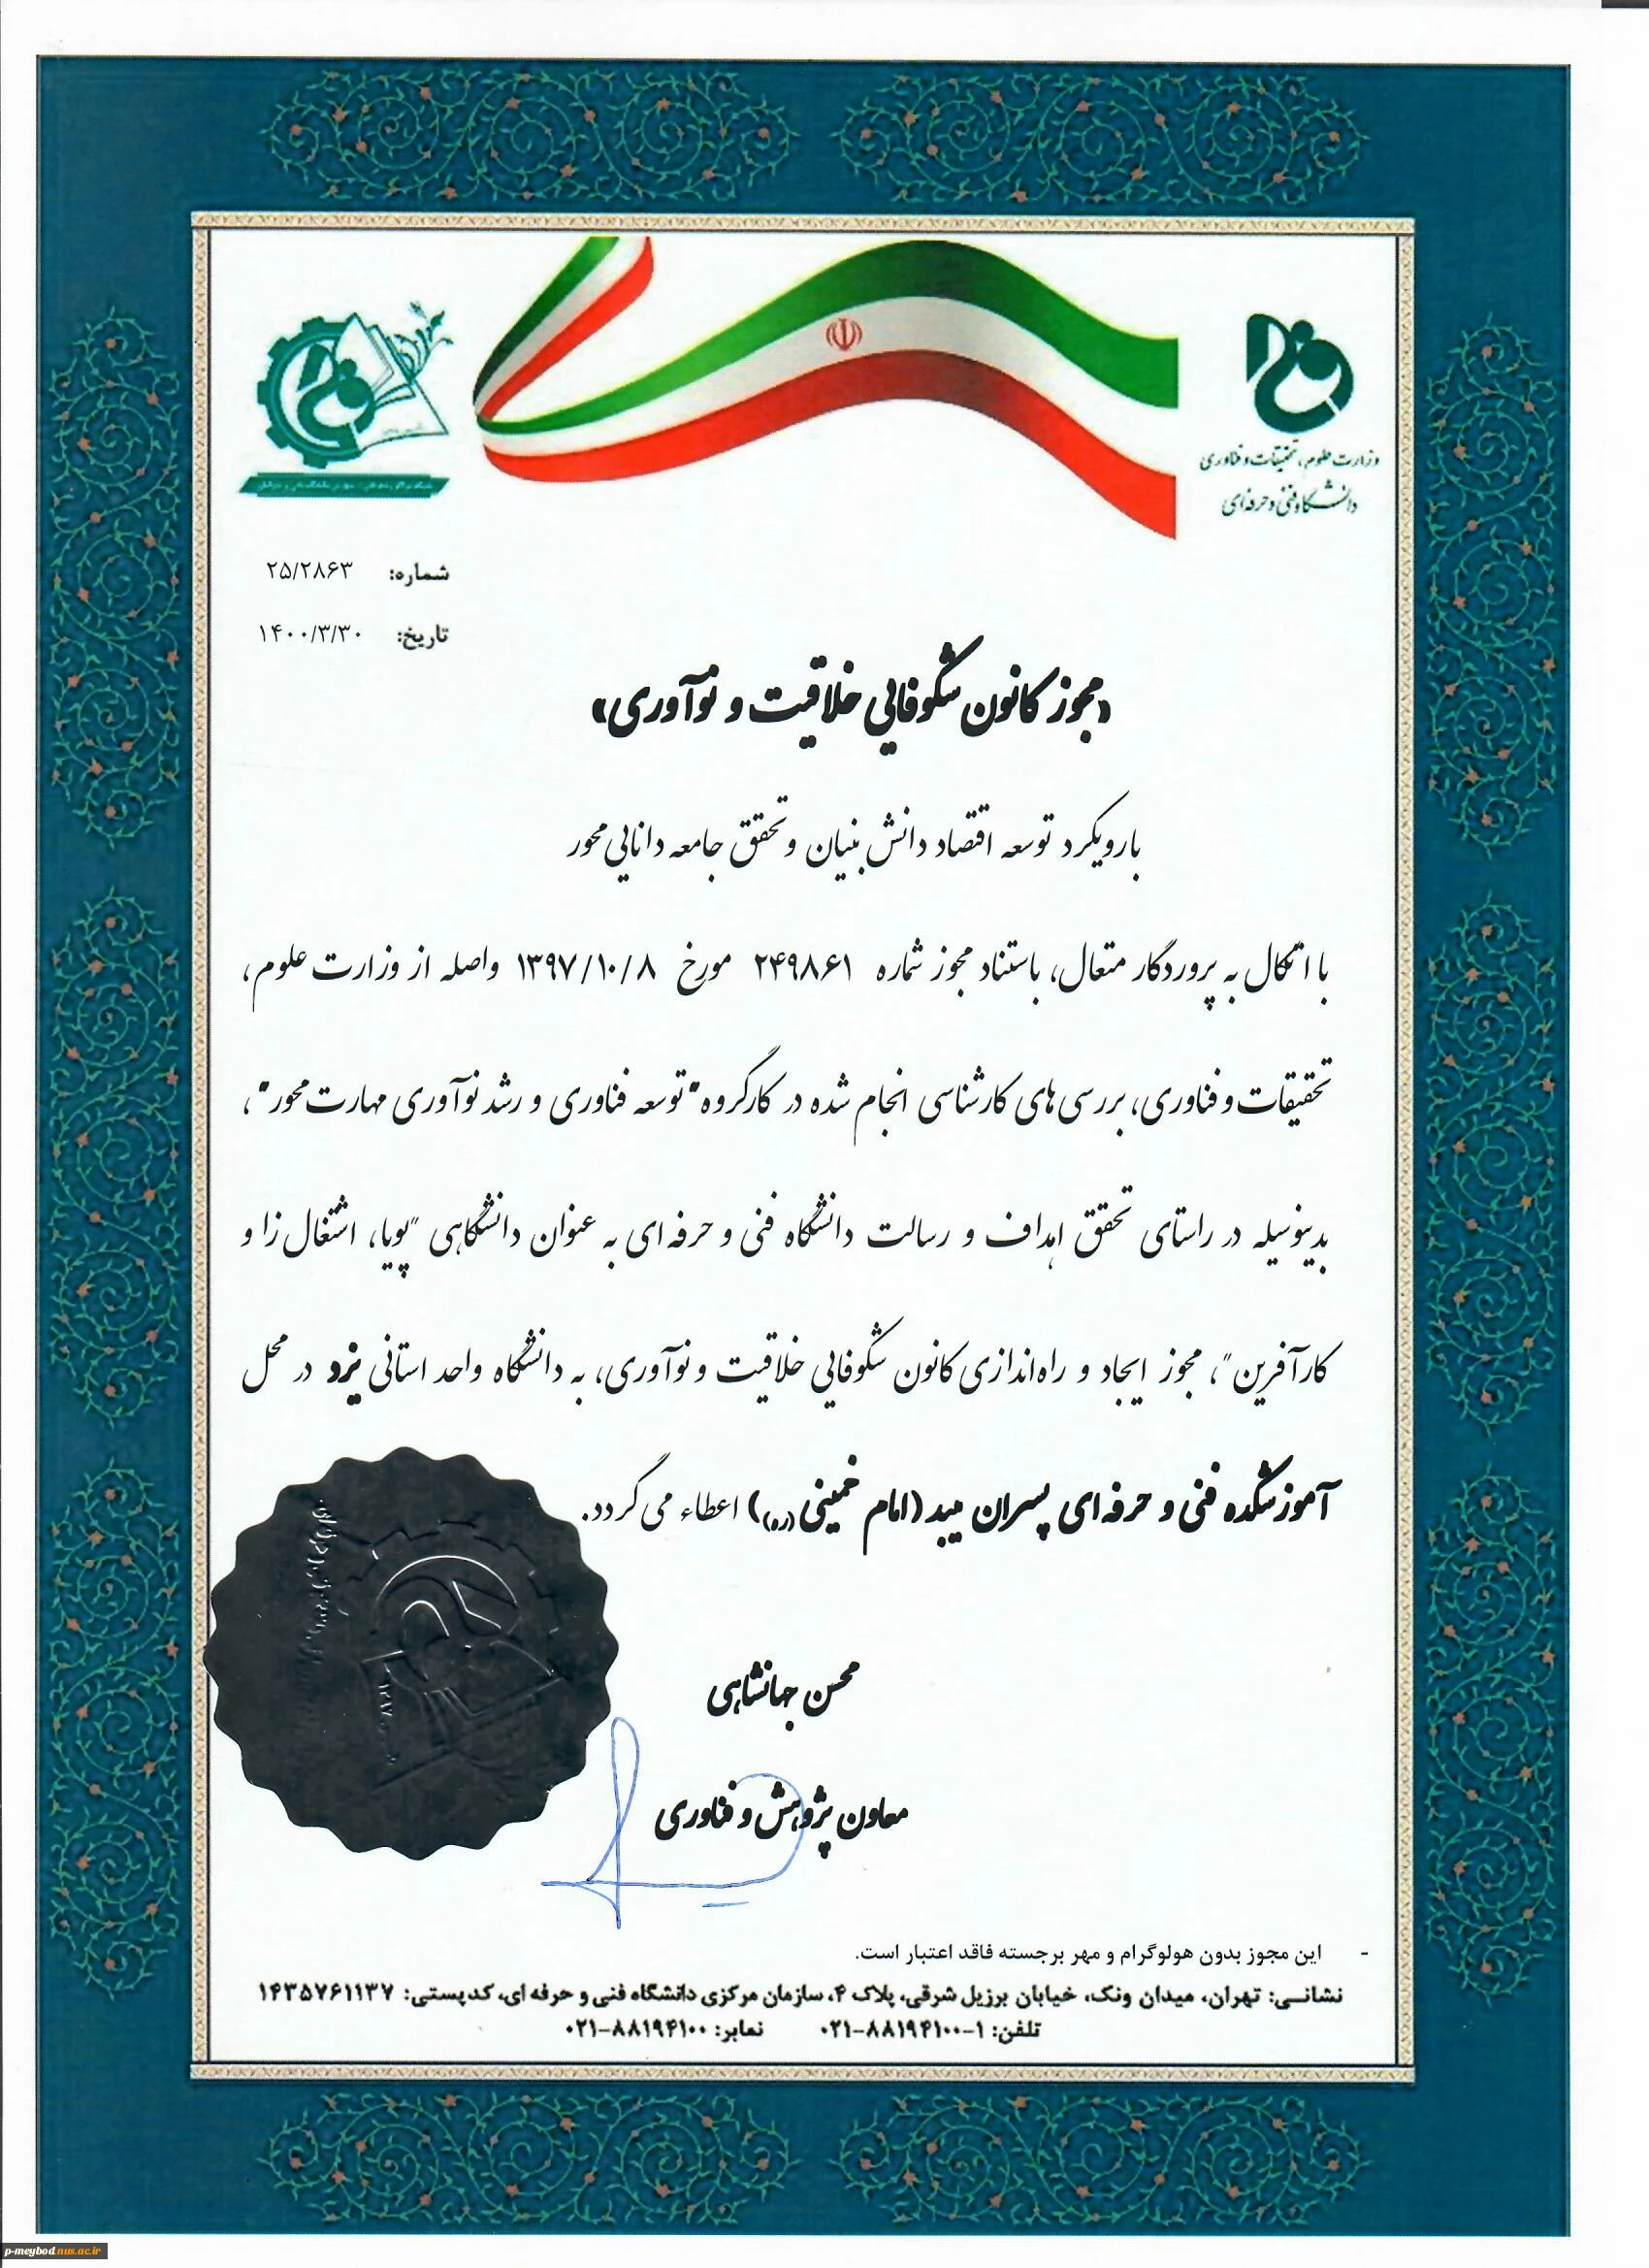 وزارت علوم، تحقیقات و فناوری
دانشگاه فنی و حرفه‌ای
شماره: ۲۵/۲۸۶۳
تاریخ: ۱۴۰۰/۳/۳۰
«مجوز کانون شکوفایی خلاقیت و نوآوری»
با رویکرد توسعه اقتصاد دانش بنیان و تحقق جامعه دانایی محور
با اتکال به پروردگار متعال، باستناد مجوز شماره ۲۴۹۸۶۱ مورخ ۱۳۹۷/۱۰/۸ واصله از وزارت علوم،
تحقیقات و فناوری، بررسی‌های کارشناسی انجام شده در کارگروه "توسعه فناوری و رشد نوآوری مهارت محور"،
بدینوسیله در راستای تحقق اهداف و رسالت دانشگاه فنی و حرفه‌ای به عنوان دانشگاهی "پویا، اشتغال زا و
کارآفرین"، مجوز ایجاد و راه‌اندازی کانون شکوفایی خلاقیت و نوآوری، به دانشگاه واحد استانی یزد در محل
آموزشکده فنی و حرفه‌ای پسران میبد (امام خمینی (ره)) اعطاء می گردد.
محسن جهانشاهی
معاون پژوهش و فناوری
- این مجوز بدون هولوگرام و مهر برجسته فاقد اعتبار است.
نشانی: تهران، میدان ونک، خیابان برزیل شرقی، پلاک ۴، سازمان مرکزی دانشگاه فنی و حرفه ای، کدپستی: ۱۴۳۵۷۶۱۱۳۷
تلفن: ۱-۸۸۱۹۴۱۰۰-۰۲۱ نمابر: ۸۸۱۹۴۱۰۰-۰۲۱
p-meybod.nus.ac.ir